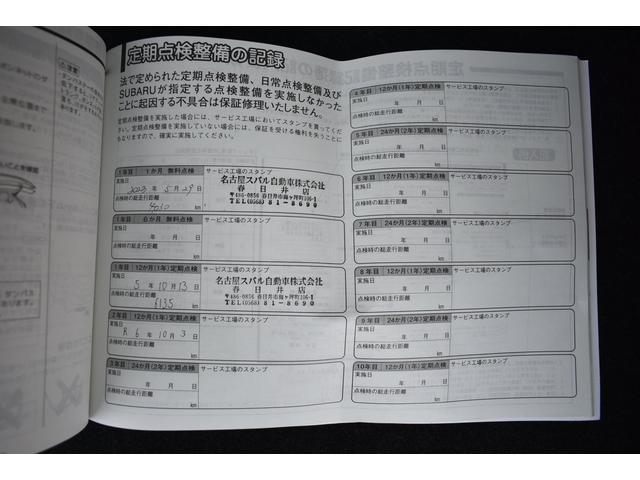 定期点検整備の記録
法で定められた定期点検整備、日常点検整備及び
SUBARUが指定する点検整備を実施しなかった
ことに起因する不具合は保証修理いたしません。
定期点検整備を実施した場合には、サービス工場においてスタンプを貰ってくだ
さい。定期点検整備を実施していない場合には、保証を受ける権利を失うことに
もなりますので、確実に実施してください。
1年目 1か月 無料点検 サービス工場のスタンプ
実施日
2023年 5月 29日
点検時の総走行距離
km
名古屋スバル自動車株式会社
春日井店
〒486-0856 春日井市梅ヶ坪町106-1
TEL(0568)81-8690
1年目 6か月 無料点検 サービス工場のスタンプ
実施日
年 月 日
点検時の総走行距離
km
1年目 12か月(1年)定期点検 サービス工場のスタンプ
実施日
5年 10月 13日
点検時の総走行距離
6135 km
名古屋スバル自動車株式会社
春日井店
〒486-0856 春日井市梅ヶ坪町106-1
TEL(0568)81-8690
2年目 12か月(1年)定期点検 サービス工場のスタンプ
実施日
R 6年 10月 3日
点検時の総走行距離
km
3年目 24か月(2年)定期点検 サービス工場のスタンプ
実施日
年 月 日
点検時の総走行距離
km
4年目 12か月(1年)定期点検 サービス工場のスタンプ
実施日
年 月 日
点検時の総走行距離
km
5年目 24か月(2年)定期点検 サービス工場のスタンプ
実施日
年 月 日
点検時の総走行距離
km
6年目 12か月(1年)定期点検 サービス工場のスタンプ
実施日
年 月 日
点検時の総走行距離
km
7年目 24か月(2年)定期点検 サービス工場のスタンプ
実施日
年 月 日
点検時の総走行距離
km
8年目 12か月(1年)定期点検 サービス工場のスタンプ
実施日
年 月 日
点検時の総走行距離
km
9年目 24か月(2年)定期点検 サービス工場のスタンプ
実施日
年 月 日
点検時の総走行距離
km
10年目 12か月(1年)定期点検 サービス工場のスタンプ
実施日
年 月 日
点検時の総走行距離
km